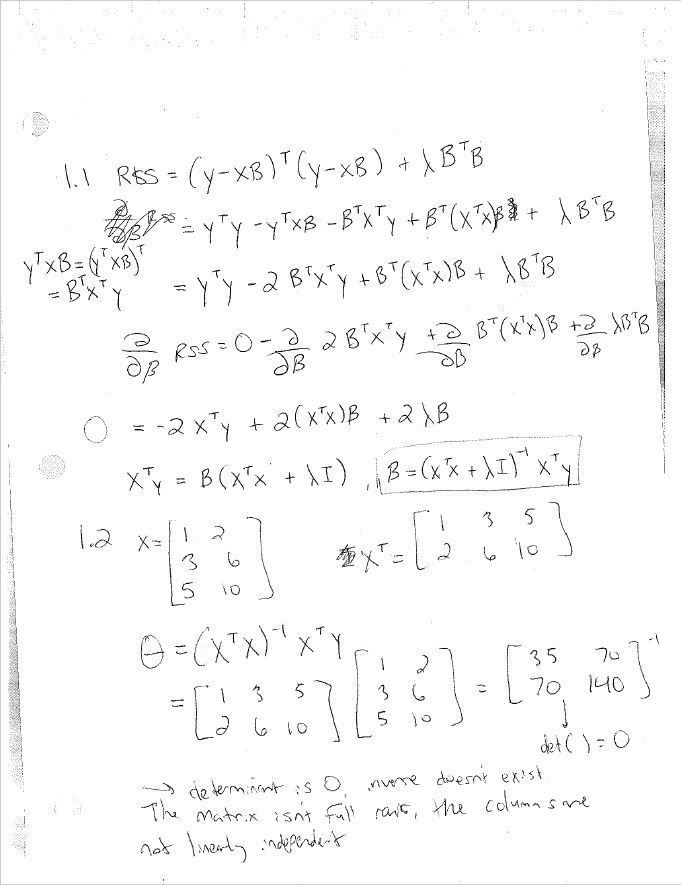 1.1 RSS = (y-xB)ᵀ(y-xB) + λBᵀB
= yᵀy - yᵀxB - Bᵀxᵀy + Bᵀ(xᵀx)B + λBᵀB
yᵀxB = (yᵀxB)ᵀ
= Bᵀxᵀy
= yᵀy - 2Bᵀxᵀy + Bᵀ(xᵀx)B + λBᵀB
∂/∂β RSS = 0 - ∂/∂B 2Bᵀxᵀy + ∂/∂B Bᵀ(xᵀx)B + ∂/∂β λBᵀB
0 = -2xᵀy + 2(xᵀx)B + 2λB
xᵀy = B(xᵀx + λI), B = (xᵀx + λI)⁻¹ xᵀy
1.2 x = [1 2
3 6
5 10]
xᵀ = [1 3 5
2 6 10]
θ = (xᵀx)⁻¹ xᵀy
= [1 3 5
2 6 10] [1 2
3 6
5 10] = [35 70
70 140]⁻¹
↓
det( ) = 0
→ determinant is 0, inverse doesn't exist
The matrix isn't full rank, the columns are
not linearly independent